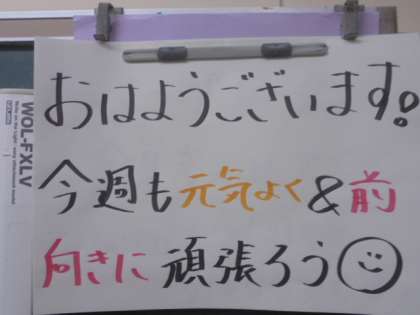 おはようございます!
今週も元気よく&前
向きに頑張ろう
WOL-FXLV